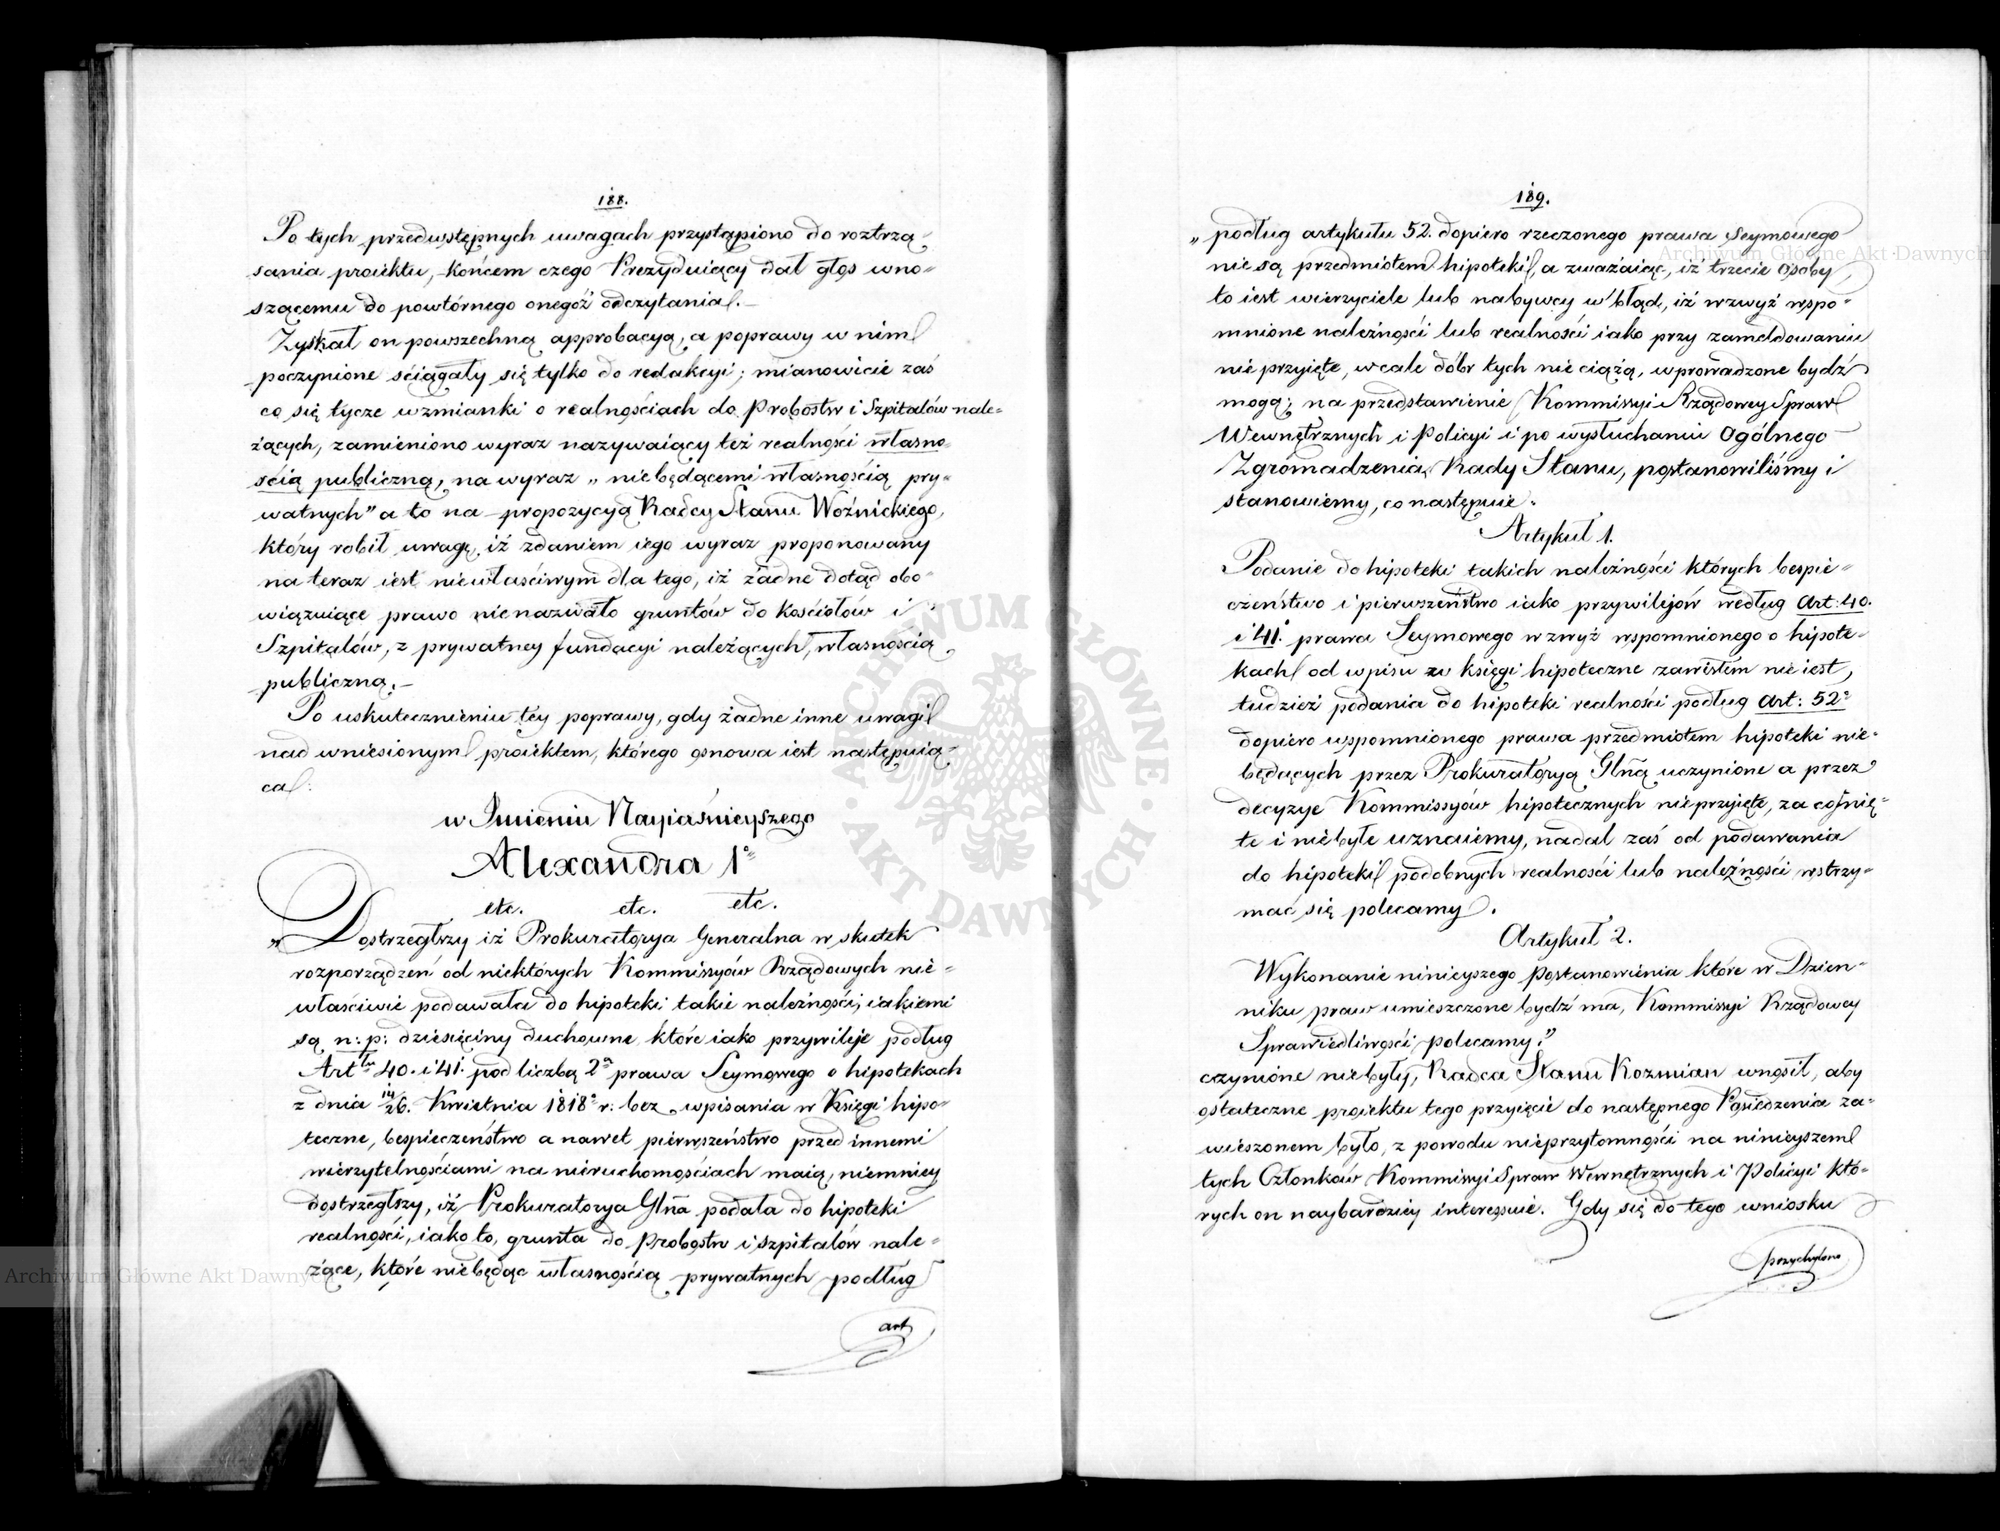 188.
Po tych przedwstępnych uwagach przystąpiono do roztrzą-
sania proiektu, końcem czego Prezyduiący dał głos wno-
szącemu do powtórnego onegóż odczytania.
Zyskał on powszechną approbacyą, a poprawy w nim
poczynione ściągały się tylko do redakcyi; mianowicie zaś
co się tycze wzmianki o realnościach do Probostw i Szpitalów nale-
żących, zamieniono wyraz nazywaiący też realności własno-
ścią publiczną, na wyraz „niebędącemi własnością pry-
watnych” a to na propozycyą Radcy Stanu Woźnickiego,
który robił uwagę, iż zdaniem iego wyraz proponowany
na teraz iest niewłaściwym dla tego, iż żadne dotąd obo-
wiązuiące prawo nienazwało gruntów do Kościołów i
Szpitalów, z prywatney fundacyi należących, własnością
publiczną.
Po uskutecznieniu tey poprawy, gdy żadne inne uwagi
nad wniesionym proiektem, którego osnowa iest następuią-
ca:
w Imieniu Nayiaśnieyszego
Alexandra 1º
etc. etc. etc.
„Dostrzegłszy iż Prokuratorya Generalna w skutek
rozporządzeń od niektórych Kommissyów Rządowych nie-
właściwie podawała do hipoteki takie należności, iakiemi
są n: p: dziesięciny duchowne, które iako przywileje podług
Artłu 40. i 41. pod liczbą 2ª prawa Seymowego o hipotekach
z dnia 14/26. Kwietnia 1818º r: bez wpisania w Księgi hipo-
teczne, bespieczeństwo a nawet pierwszeństwo przed innemi
wierzytelnościami na nieruchomościach maią, niemniey
dostrzegłszy, iż Prokuratorya Glna podała do hipoteki
realności, iako to, grunta do Probostw i szpitalów nale-
żące, które niebędąc własnością prywatnych podług
art
189.
„podług artykułu 52. dopiero rzeczonego prawa Seymowego
nie są przedmiotem hipoteki, a zważaiąc, iż trzecie osoby
to iest wierzyciele lub nabywcy w błąd, iż wzwyż wspo-
mnione należności lub realności iako przy zameldowaniu
nie przyięte, wcale dóbr tych nie ciążą, wprowadzone bydź
mogą; na przedstawienie Kommissyi Rządowey Spraw
Wewnętrznych i Policyi i po wysłuchaniu Ogólnego
Zgromadzenia Rady Stanu, postanowiliśmy i
stanowiemy, co następuie:
Artykuł 1.
Podanie do hipoteki takich należności których bespie-
czeństwo i pierwszeństwo iako przywilejów według Art: 40.
i 41. prawa Seymowego wzwyż wspomnionego o hipote-
kach od wpisu w księgi hipoteczne zawisłem nie iest,
tudzież podania do hipoteki realności podług Art: 52º
dopiero wspomnionego prawa przedmiotem hipoteki nie-
będących przez Prokuratoryą Glną uczynione a przez
decyzye Kommissyów hipotecznych nieprzyięte, za cofnię-
te i niebyłe uznaiemy, nadal zaś od podawania
do hipoteki podobnych realności lub należności wstrzy-
mać się polecamy.
Artykuł 2.
Wykonanie ninieyszego Postanowienia które w Dzien-
niku praw umieszczone bydź ma, Kommissyi Rządowey
Sprawiedliwości polecamy.”
czynione niebyły, Radca Stanu Kozmian wnosił, aby
ostateczne proiektu tego przyięcie do następnego Posiedzenia za-
wieszonem było, z powodu nieprzytomności na ninieyszem
tych Członków Kommissyi Spraw Wewnętrznych i Policyi któ-
rych on naybardziey interessuie. Gdy się do tego wniosku
przychylono
ARCHIWUM GŁÓWNE AKT DAWNYCH
Archiwum Główne Akt Dawnych
Archiwum Główne Akt Dawnych